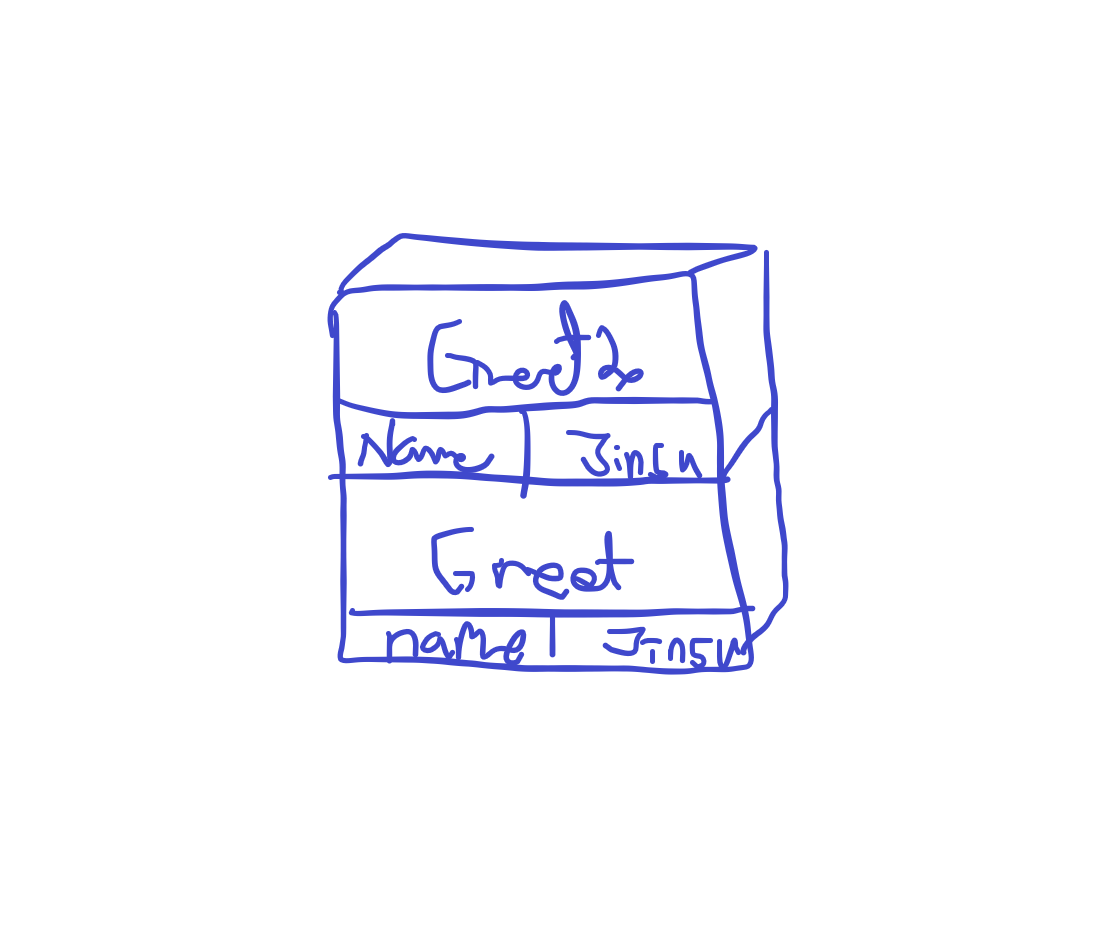 Greet2
Name Jinsu
Greet
name Jinsu